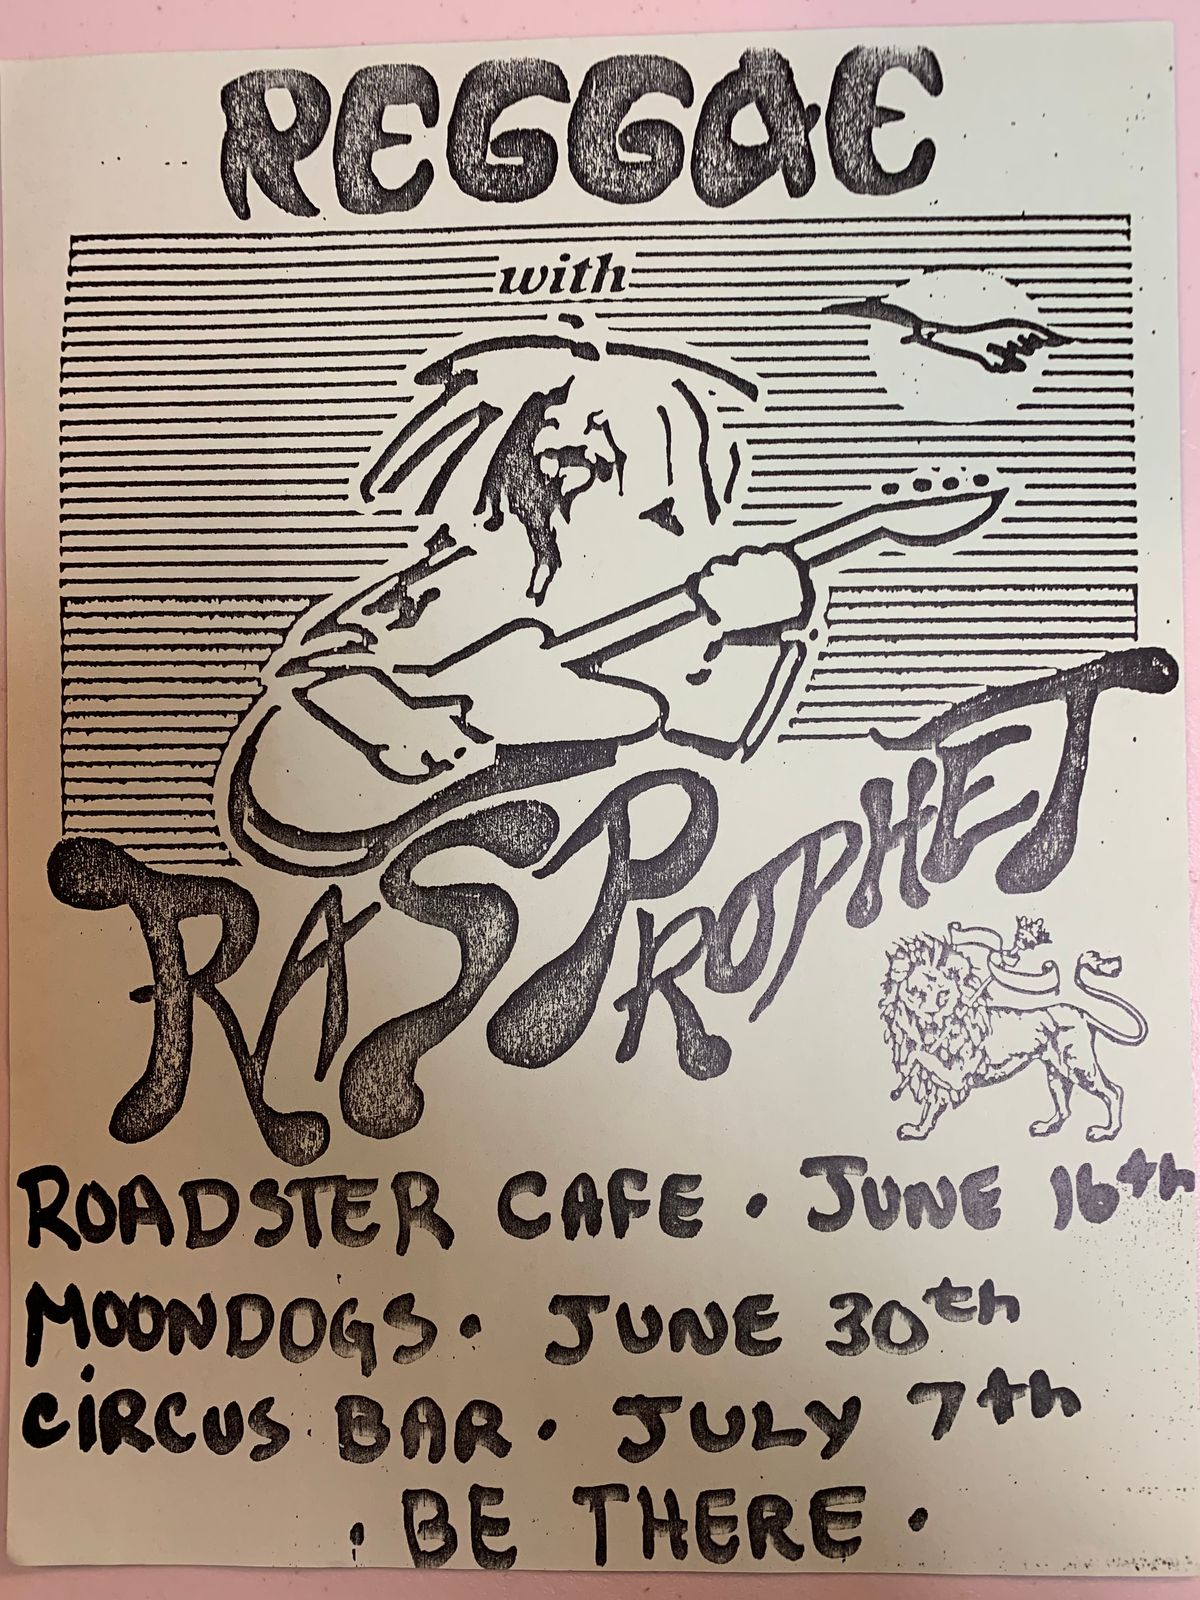 REGGAE
with
RAS PROPHET
ROADSTER CAFE • JUNE 16th
MOONDOGS • JUNE 30th
CiRCUS BAR • JULY 7th
• BE THERE •